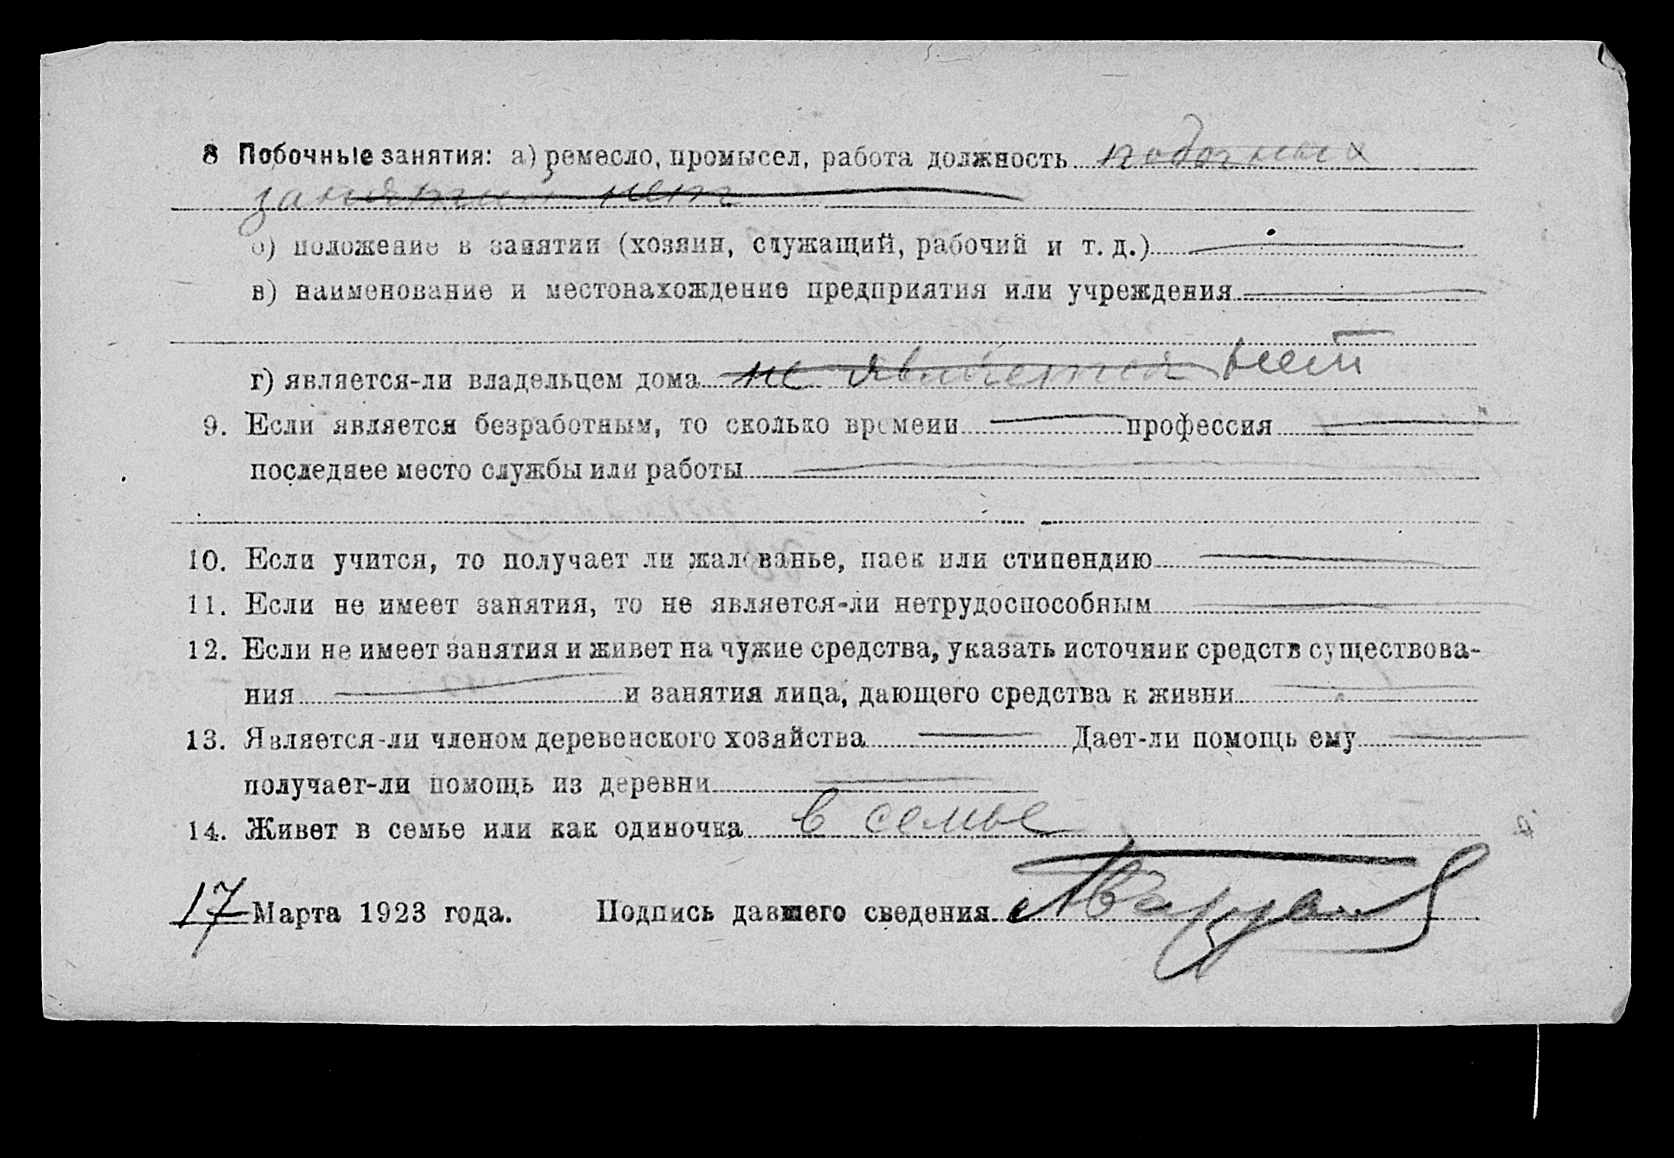 8 Побочные занятия: а) ремесло, промысел, работа должность побочных
занятий нет
б) положение в занятии (хозяин, служащий, рабочий и т. д.)
в) наименование и местонахождение предприятия или учреждения
г) является-ли владельцем дома не является Нет
9. Если является безработным, то сколько времени профессия
последнее место службы или работы
10. Если учится, то получает ли жалованье, паек или стипендию
11. Если не имеет занятия, то не является-ли нетрудоспособным
12. Если не имеет занятия и живет на чужие средства, указать источник средств существова-
ния и занятия лица, дающего средства к жизни
13. Является-ли членом деревенского хозяйства Дает-ли помощь ему
получает-ли помощь из деревни
14. Живет в семье или как одиночка в семье
17 Марта 1923 года. Подпись давшего сведения.